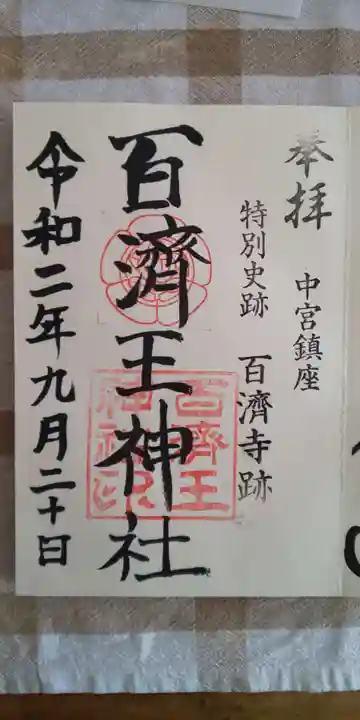 奉拝
中宮鎮座
特別史跡 百濟寺跡
百濟王神社
百濟王神社印
令和二年九月二十日